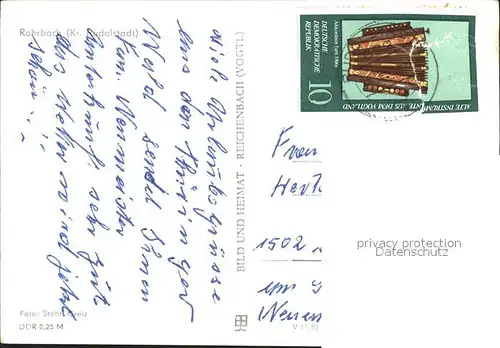 Rohrbach (Kr. Rudolstadt)
Viele Urlaubsgrüsse
aus dem Thüringer
Wald sendet Ihnen
Fam. Neumeister
Unterkunft sehr gut
das Wetter wird jetzt
schön.
Foto: Stehr, Greiz
DDR 0,25 M
BILD UND HEIMAT · REICHENBACH (VOGTL)
V 11 80
Akkordeon
DEUTSCHE
DEMOKRATISCHE
REPUBLIK
10
ALTE INSTRUMENTE AUS DEM VOGTLAND
1502
privacy protection
Datenschutz